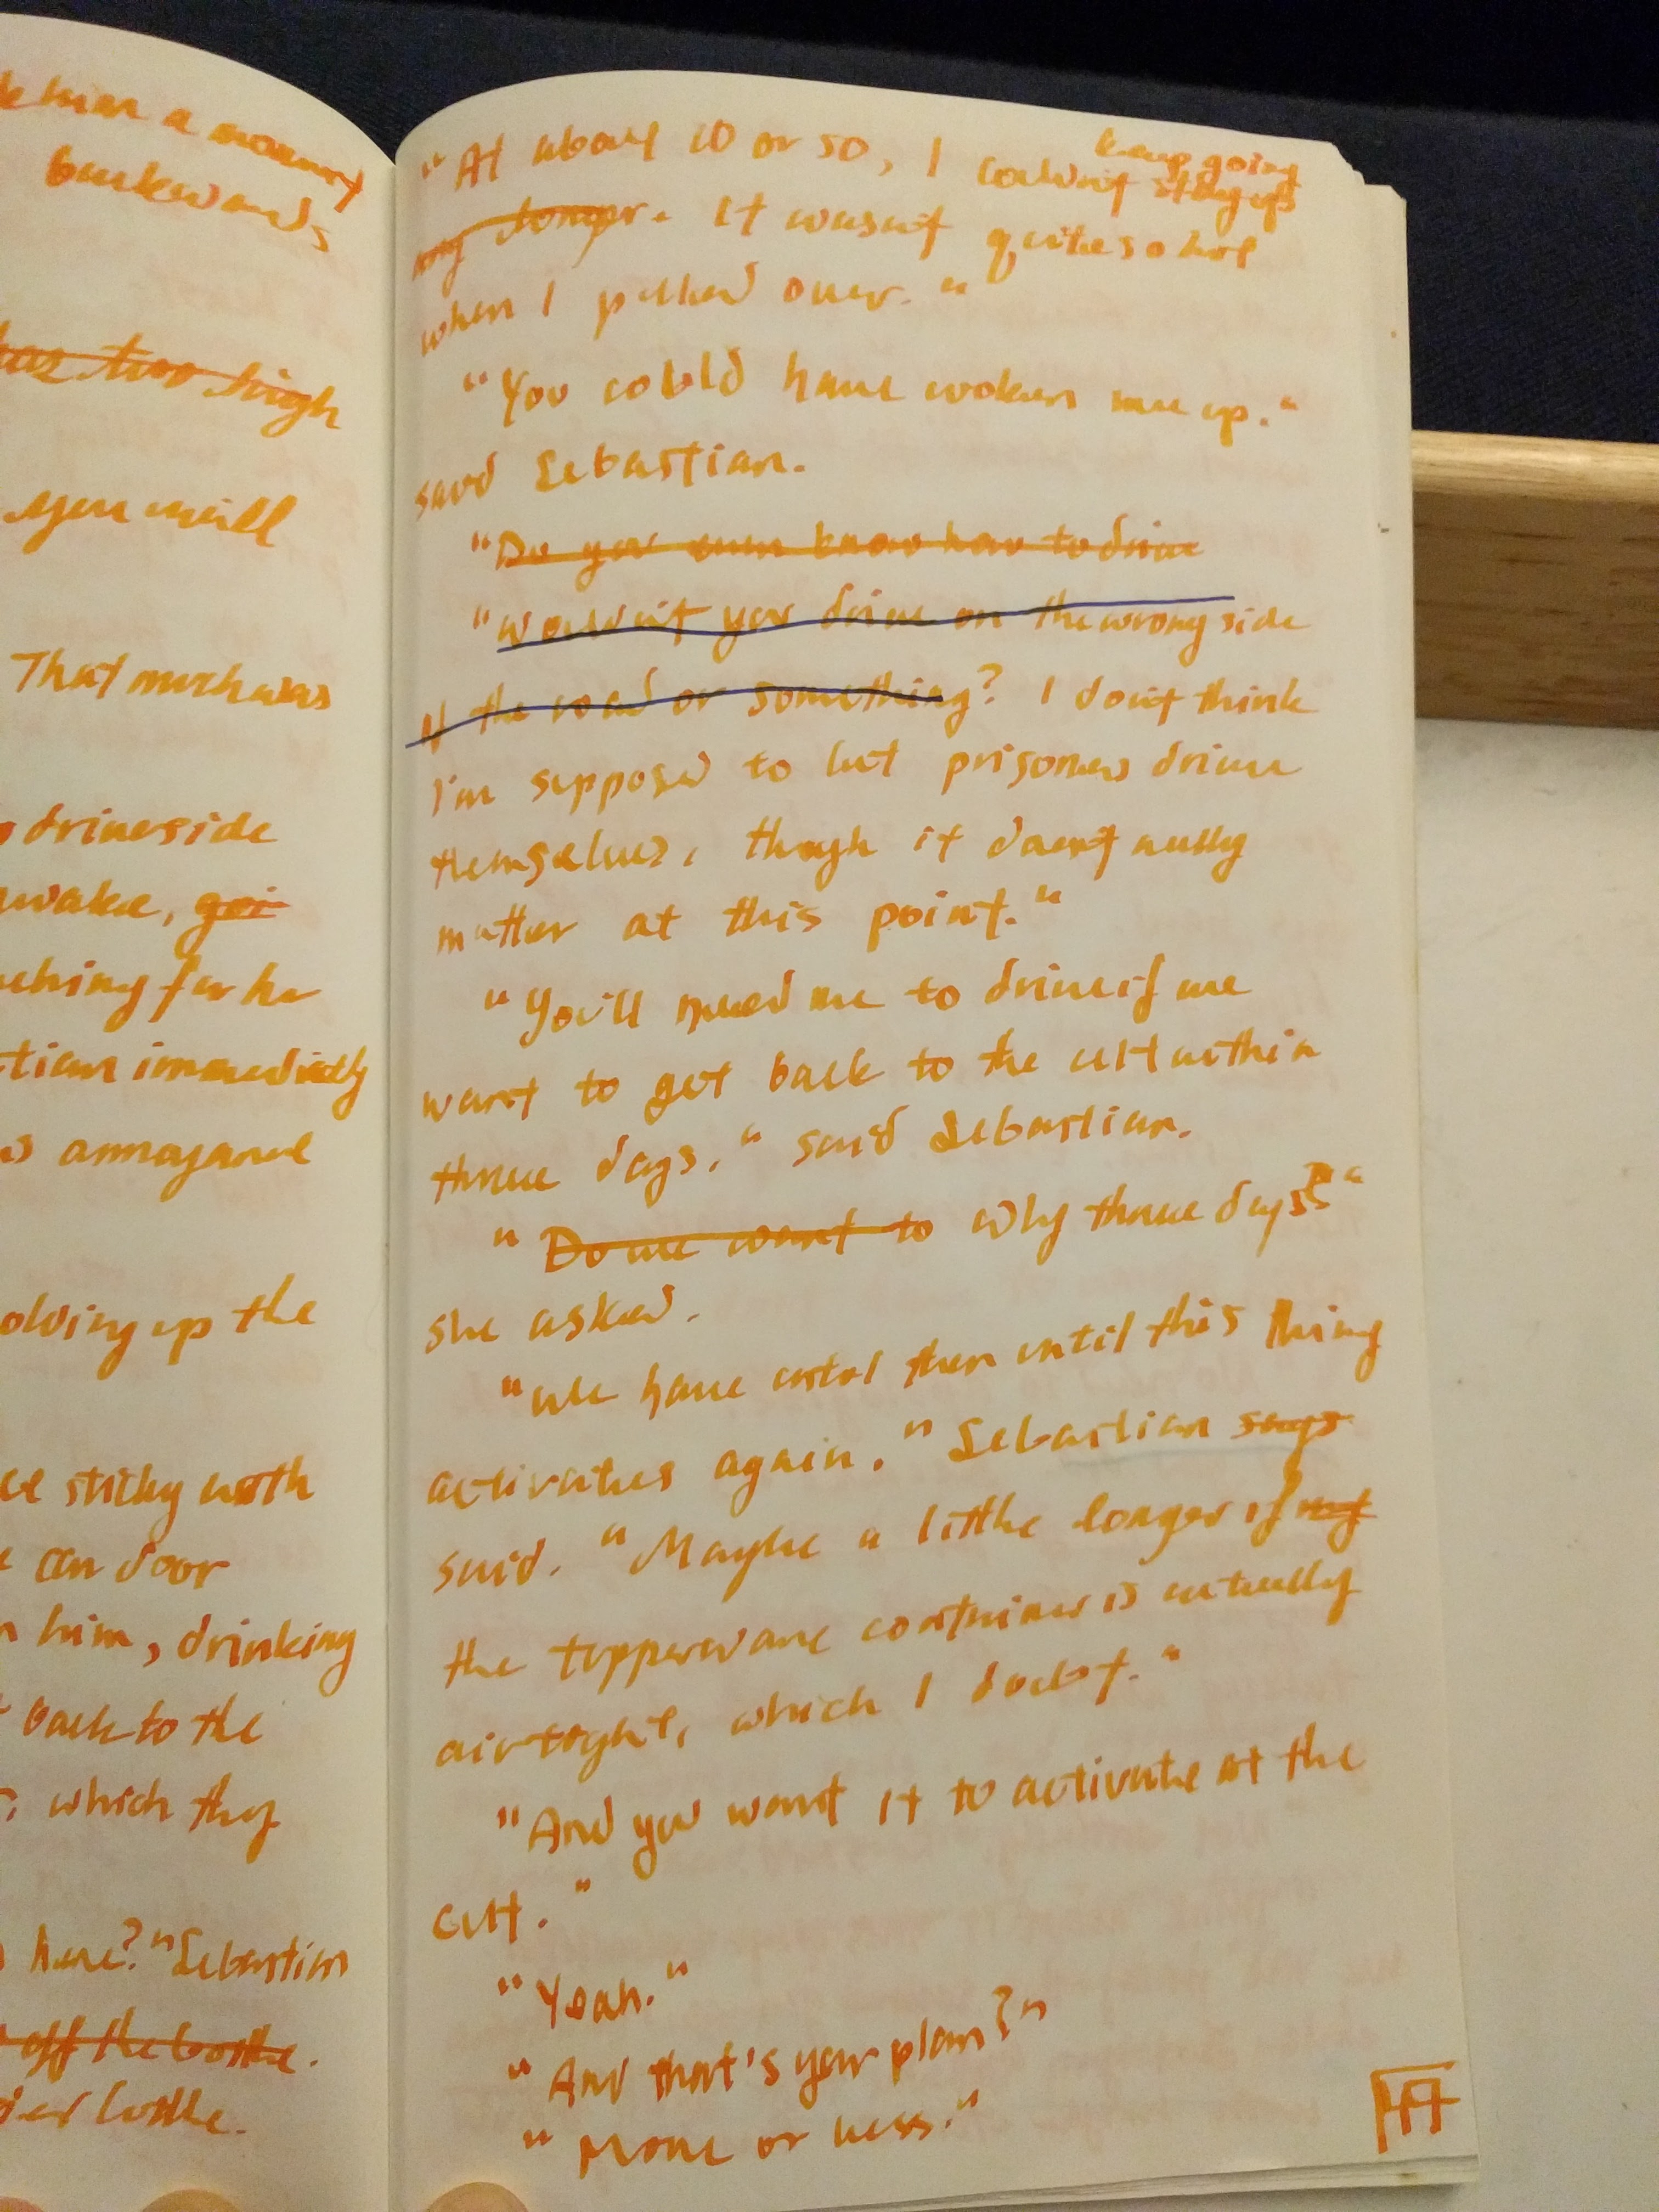 him a
backwards
too high
you will
That much was
driveside
awake, goi
for her
immediately
annoyance
up the
sticky with
car door
him, drinking
back to the
, which they
here?" Sebastian
off the bottle.
bottle.
keep going
"At about 10 or so, I couldn't stay up
any longer. It wasn't quite so hot
when I pulled over."
"You could have woken me up."
said Sebastian.
"Do you even know how to drive
"Wouldn't you drive on the wrong side
of the road or something? I don't think
I'm supposed to let prisoners drive
themselves, though it doesn't really
matter at this point."
"You'll need me to drive if we
want to get back to the cult within
three days," said Sebastian.
"Do we want to Why three days?"
she asked.
"We have until then until this thing
activates again." Sebastian says
said. "Maybe a little longer if not
the tupperware container is actually
airtight, which I doubt."
"And you want it to activate at the
cult."
"Yeah."
"And that's your plan?"
"More or less."